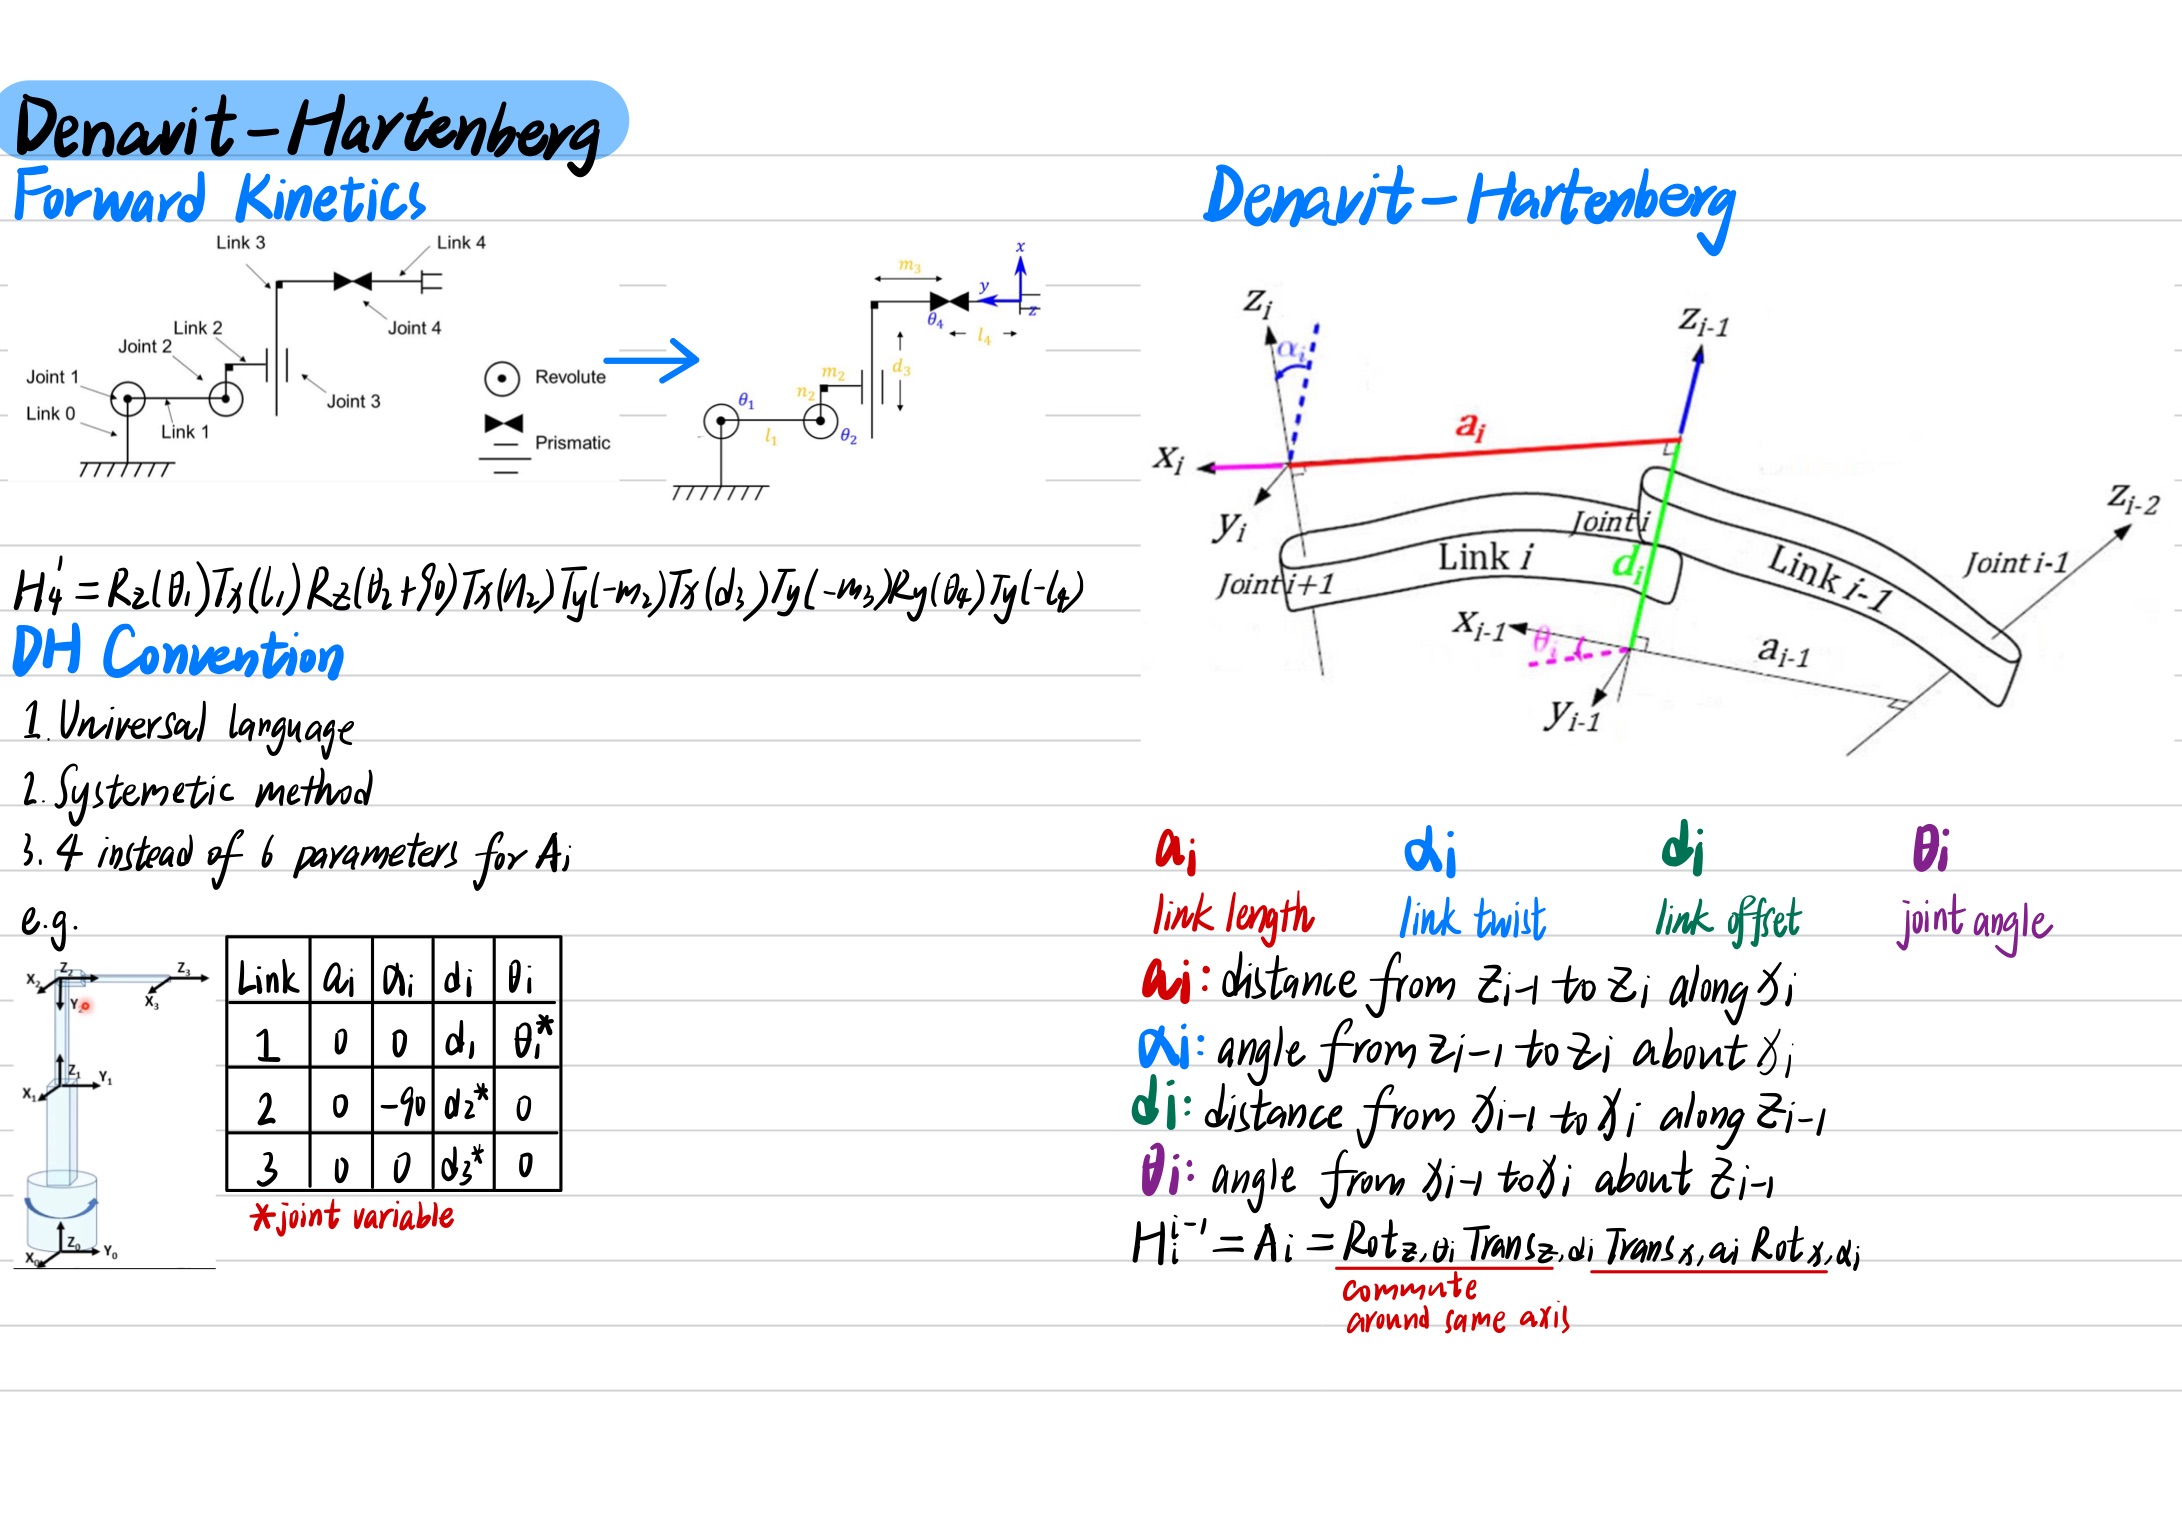 Denavit-Hartenberg
Forward Kinetics
Link 3
Link 4
Link 2
Joint 4
Joint 2
Joint 1
Revolute
Link 0
Link 1
Joint 3
Prismatic
x
m₃
y
z
θ₄
l₄
d₃
m₂
n₂
θ₁
l₁
θ₂
H₄¹ = Rz(θ₁)Tx(l₁)Rz(θ₂+90)Tx(n₂)Ty(-m₂)Tx(d₃)Ty(-m₃)Ry(θ₄)Ty(-l₄)
DH Convention
1. Universal language
2. Systemetic method
3. 4 instead of 6 parameters for Ai
e.g.
X₂ Z₂ Z₃
Y₂ X₃
Z₁ Y₁
X₁
Z₀ Y₀
X₀
Link ai αi di θi
1 0 0 d₁ θi*
2 0 -90 d₂* 0
3 0 0 d₃* 0
*joint variable
Denavit-Hartenberg
zi
zi-1
αi
ai
xi
zi-2
yi
Joint i
Joint i-1
Link i
di
Link i-1
Joint i+1
xi-1
θi
ai-1
yi-1
ai αi di θi
link length link twist link offset joint angle
ai: distance from zi-1 to zi along xi
αi: angle from zi-1 to zi about xi
di: distance from xi-1 to xi along zi-1
θi: angle from xi-1 to xi about zi-1
Hᵢⁱ⁻¹ = Ai = Rot z,θi Trans z,di Trans x,ai Rot x,αi
commute
around same axis